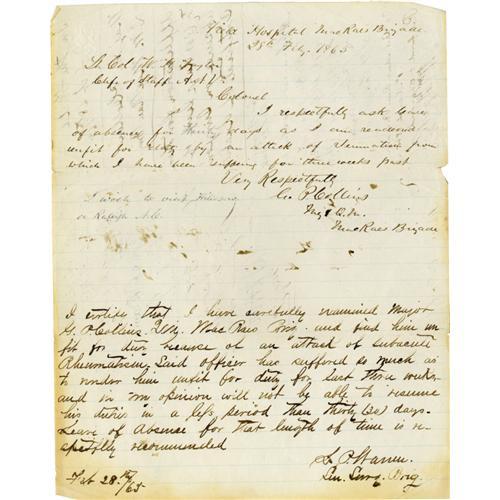 Hospital MacRaes Brigade
28th Feby. 1865
Lt. Col W. H. Taylor
Chf. of Staff A N V
Colonel
I respectfully ask leave
of absence for thirty days as I am rendered
unfit for duty by an attack of rheumatism from
which I have been suffering for three weeks past
Very Respectfully
Geo. P. Collins
Maj & Q.M.
MacRaes Brigade
I wish to visit
or Raleigh N.C.
I certify that I have carefully examined Major
G. P. Collins, Q.M. MacRaes Brig. and find him un
fit for duty because of an attack of subacute
Rheumatism. Said officer has suffered so much as
to render him unfit for duty for last three weeks
and in my opinion will not be able to resume
his duties in a less period than thirty (30) days.
Leave of Absence for that length of time is re-
spectfully recommended
L. P. Warren
Sen. Surg. Brig.
Feb 28th/65